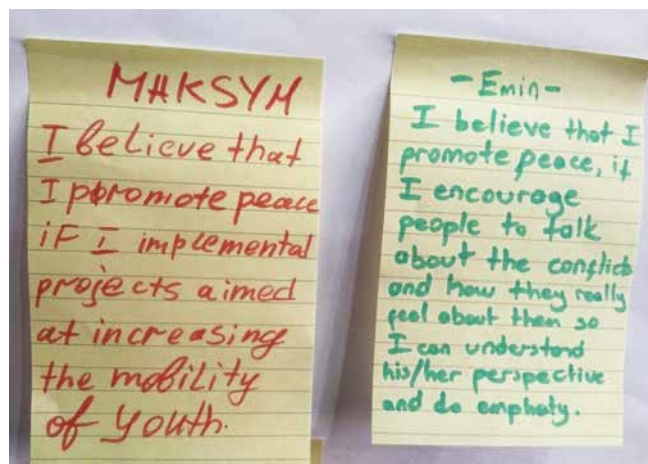 MAKSYM
I believe that
I promote peace
if I implemental
projects aimed
at increasing
the mobility
of youth.
-Emin-
I believe that I
promote peace, if
I encourage
people to talk
about the conflicts
and how they really
feel about them so
I can understand
his/her perspective
and do emphaty.